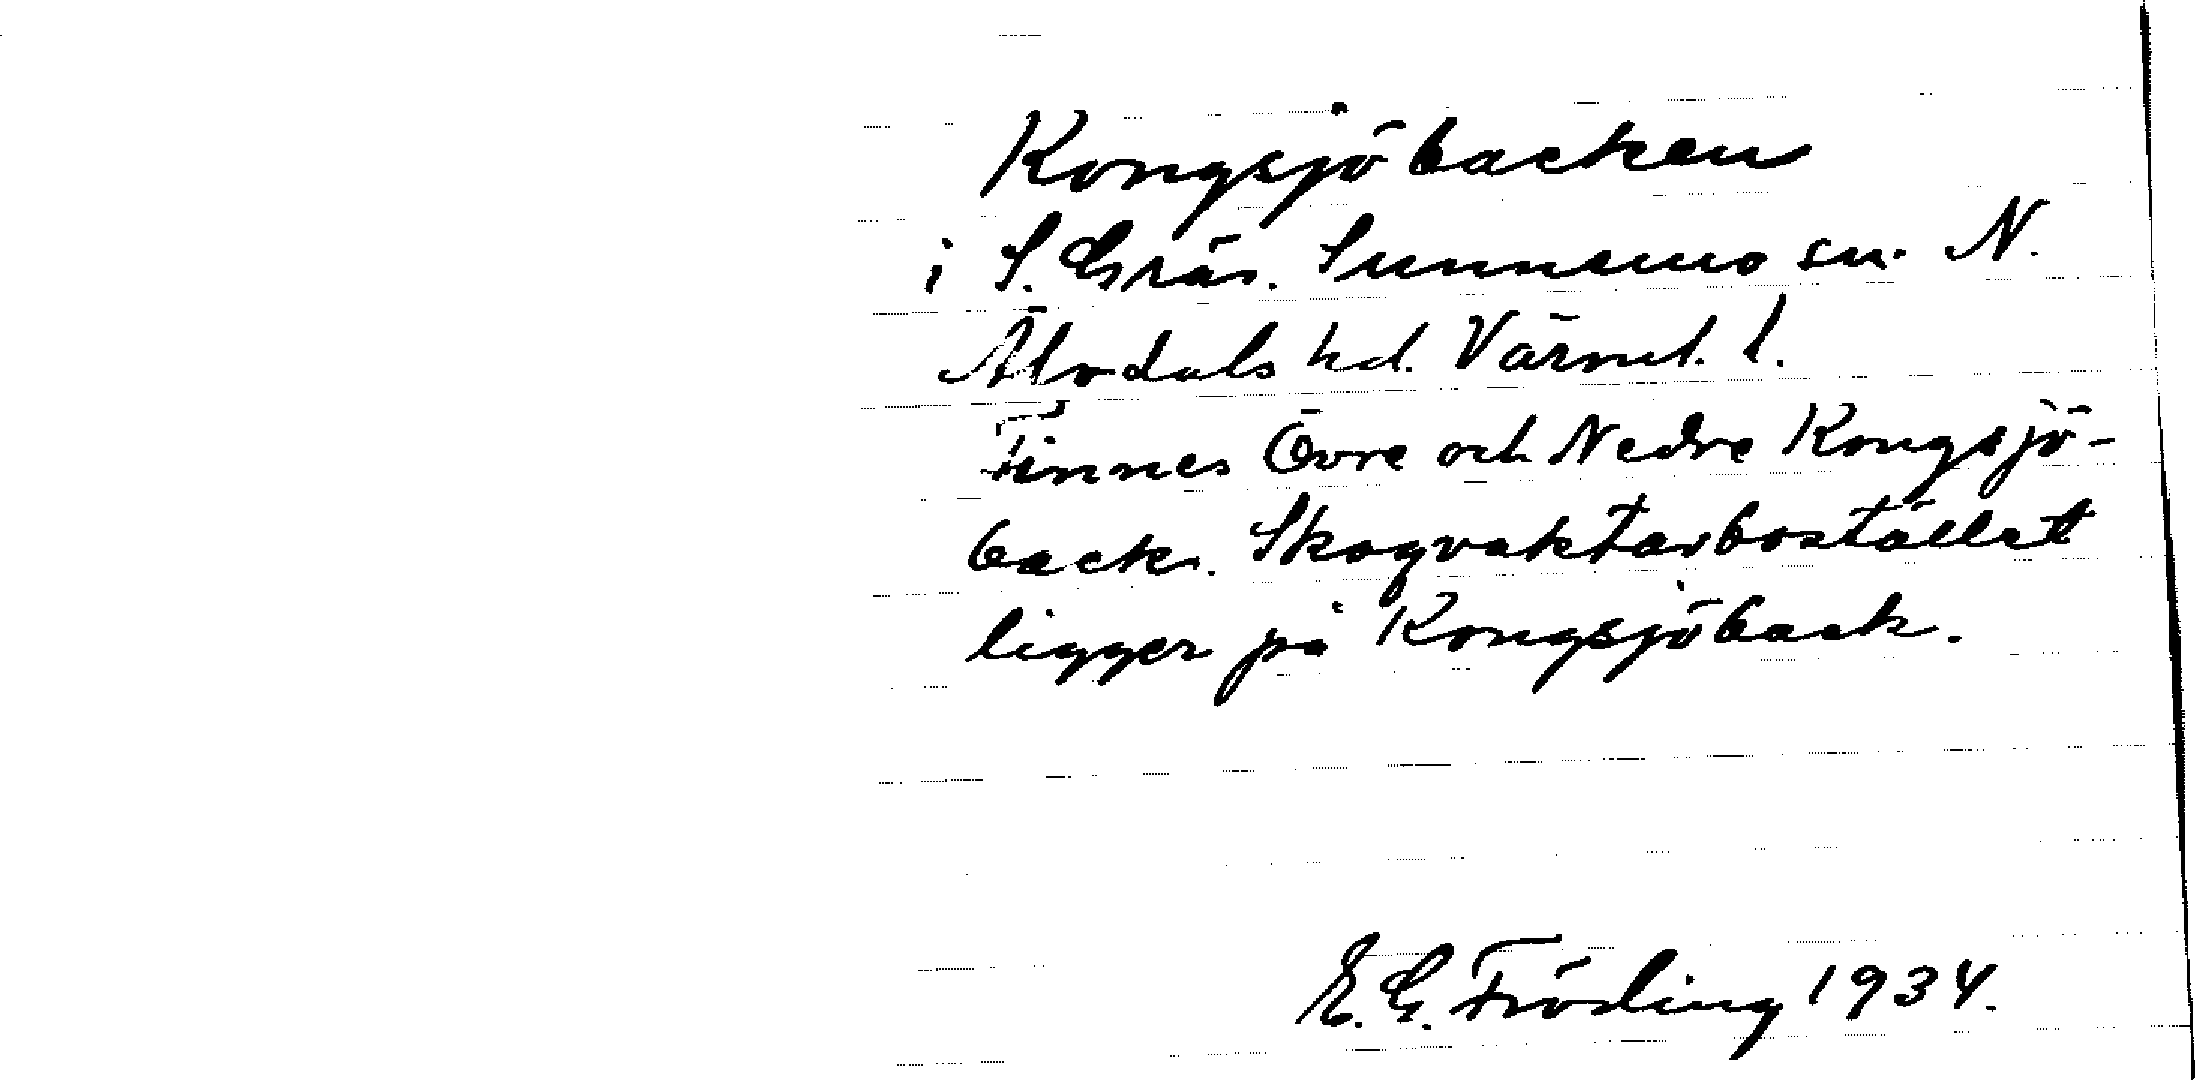 Kongsjöbacken
i S. Gräs. Sunnemo sn. N.
Älvdals hd. Värml. l.
Finnes Övre och Nedre Kongsjö-
back. Skogvaktarbostället
ligger på Kongsjöback.
E. G. Fröding 1934.